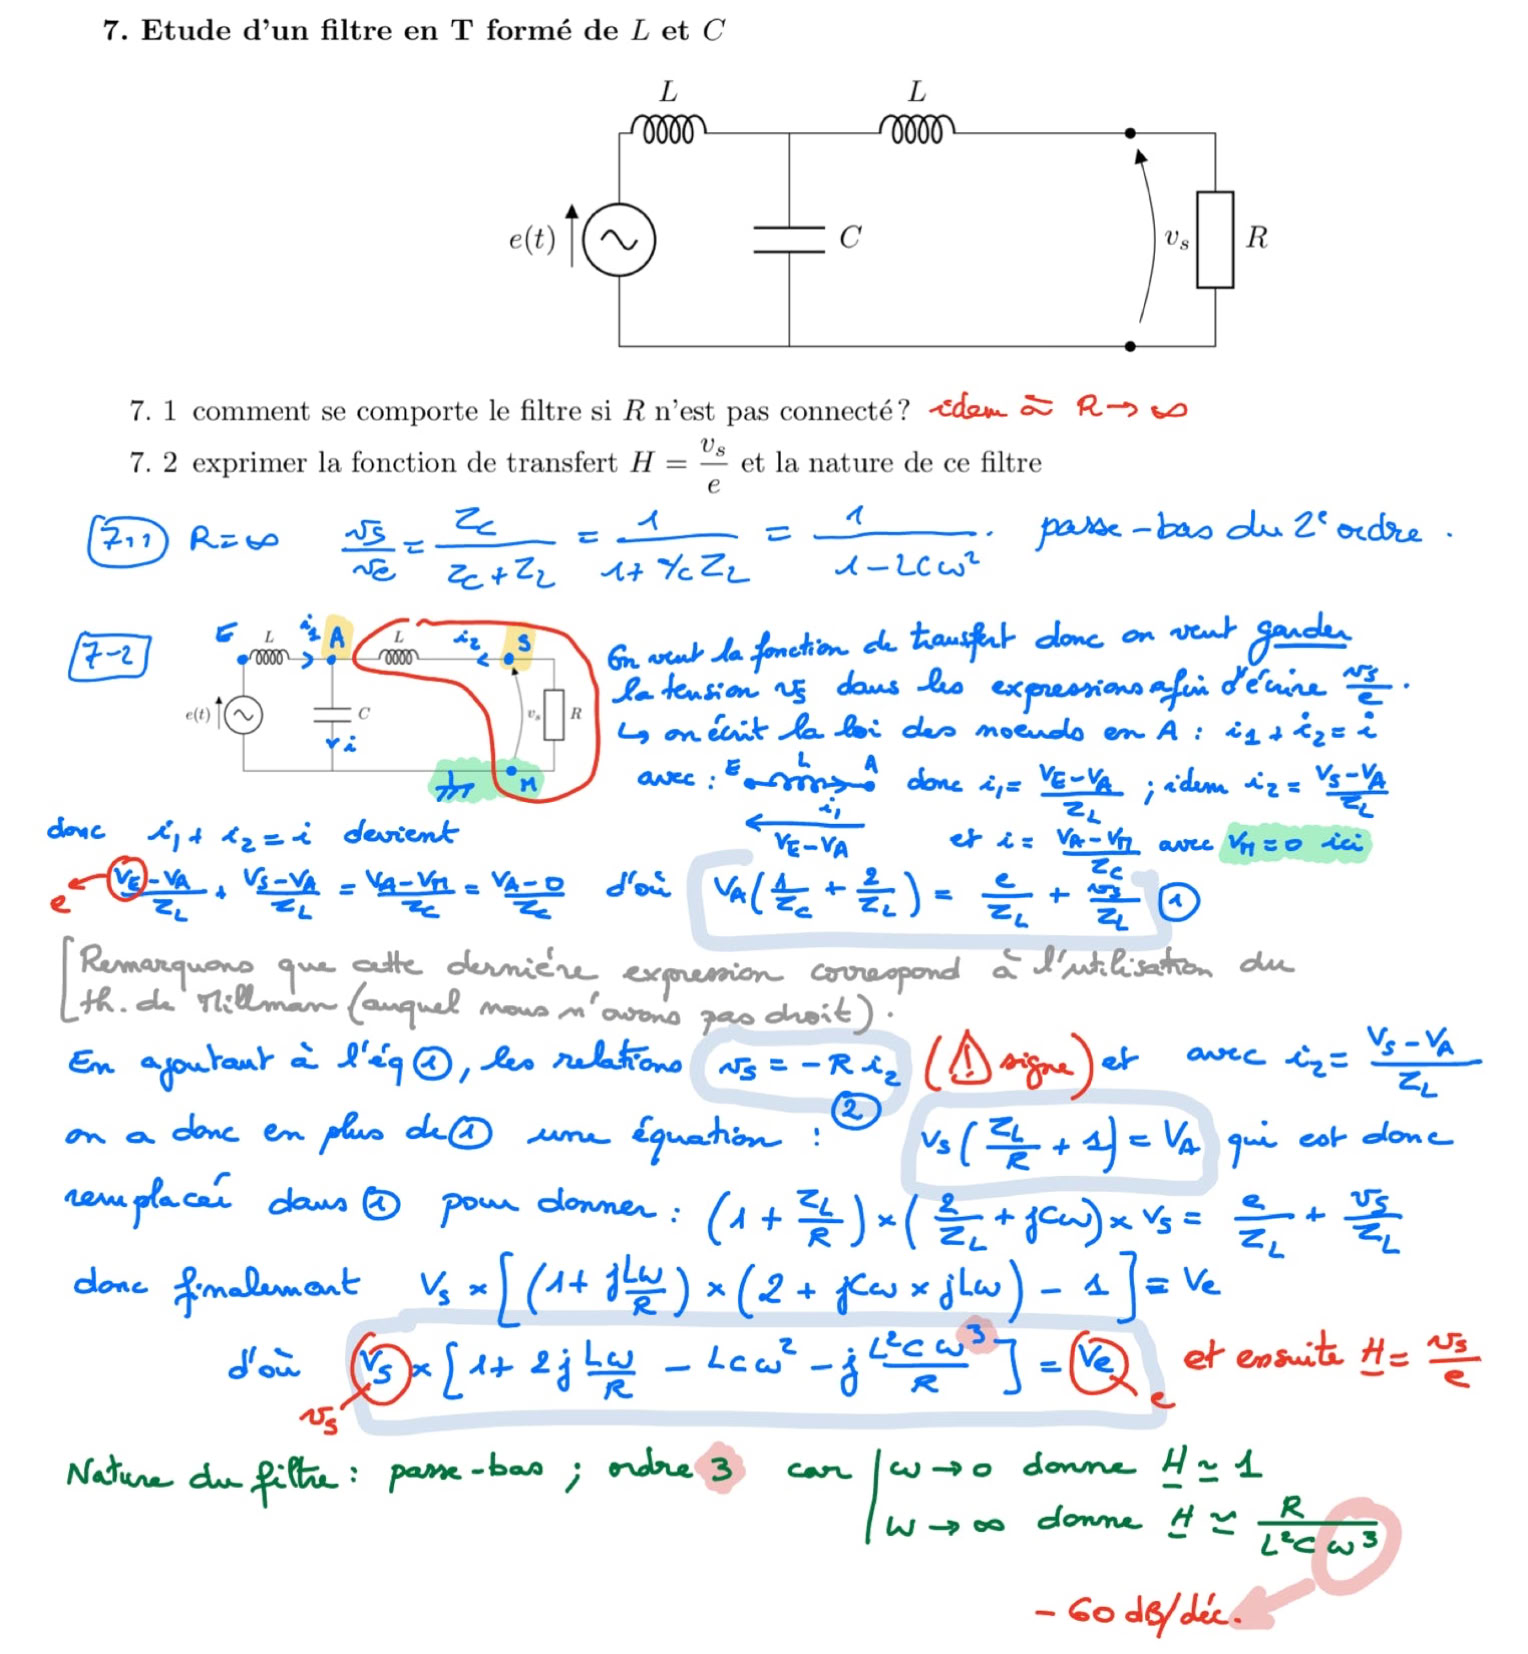 7. Etude d'un filtre en T formé de L et C
L L
e(t) C v_s R
7. 1 comment se comporte le filtre si R n'est pas connecté? idem à R→∞
7. 2 exprimer la fonction de transfert H = v_s/e et la nature de ce filtre
7.1 R=∞ vs/ve = Zc/(Zc+ZL) = 1/(1+YcZL) = 1/(1-LCω²). passe-bas du 2e ordre.
7-2 E L i1 A L i2 S
e(t) C i v_s R M
On veut la fonction de transfert donc on veut garder
la tension vs dans les expressions afin d'écrire vs/e.
↳ on écrit la loi des noeuds en A : i1 + i2 = i
avec : E L A i1 VE-VA donc i1 = (VE-VA)/ZL ; idem i2 = (VS-VA)/ZL
et i = (VA-VM)/Zc avec VM=0 ici
donc i1 + i2 = i devient
e ← (VE-VA)/ZL + (VS-VA)/ZL = (VA-VM)/Zc = (VA-0)/Zc d'où VA(1/Zc + 2/ZL) = e/ZL + vs/ZL ①
[Remarquons que cette dernière expression correspond à l'utilisation du
th. de Millman (auquel nous n'avons pas droit).
En ajoutant à l'éq ①, les relations vs = -R i2 (⚠ signe) et avec i2 = (VS-VA)/ZL
②
on a donc en plus de ① une équation : VS(ZL/R + 1) = VA qui est donc
remplacé dans ① pour donner : (1 + ZL/R) × (2/ZL + jCω) × VS = e/ZL + vs/ZL
donc finalement VS × [(1 + jLω/R) × (2 + jCω × jLω) - 1] = Ve
d'où VS × [1 + 2j Lω/R - LCω² - j L²Cω³/R] = Ve et ensuite H = vs/e
vs e
Nature du filtre : passe-bas ; ordre 3 car | ω → 0 donne H ≃ 1
ω → ∞ donne H ≃ R/(L²Cω³)
- 60 dB/déc.